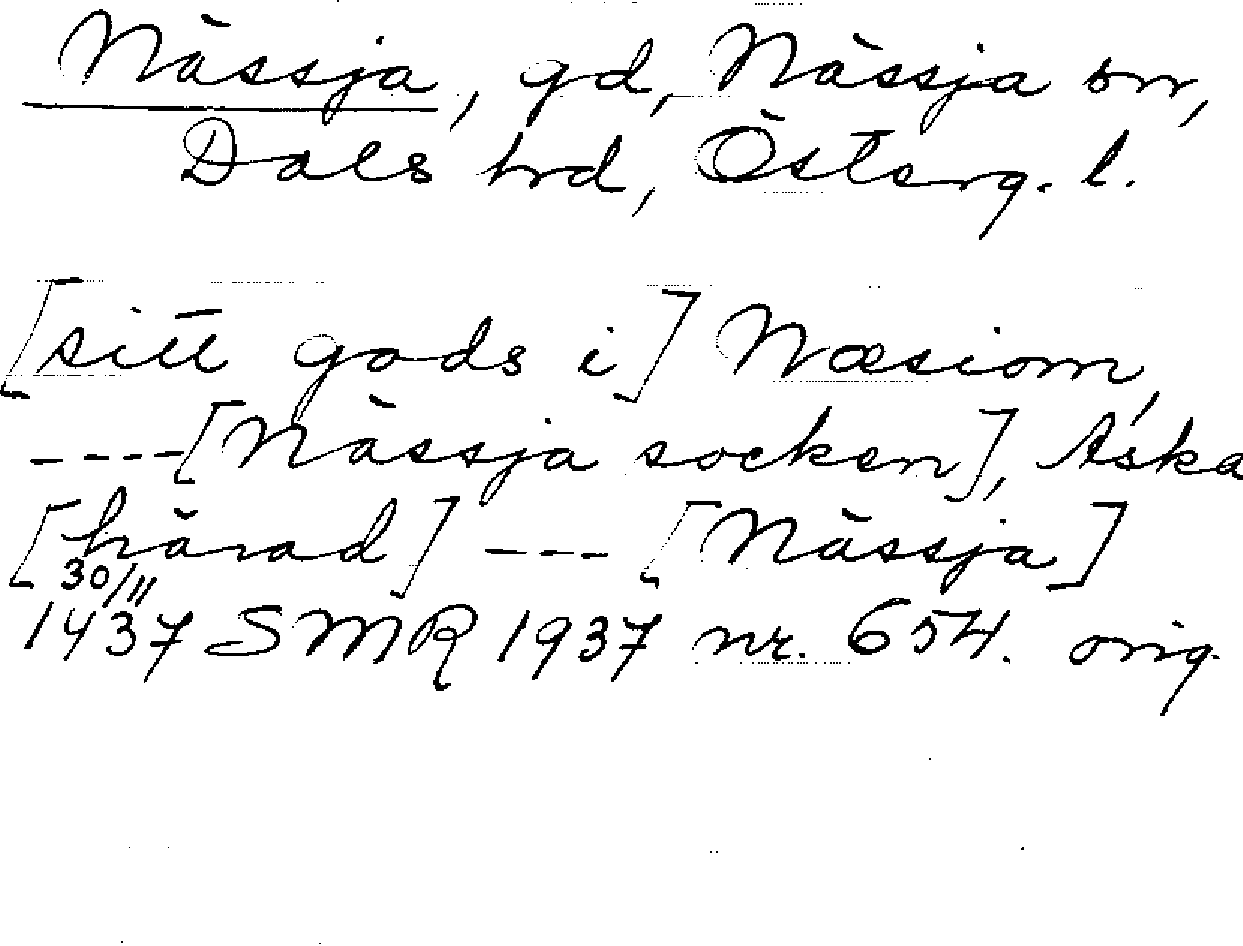 Nässja, gd, Nässja sn,
Dals hd, Österg. l.
[sitt gods i] Næsiom,
----[Nässja socken], Aska
[härad] --- [Nässja]
30/11
1437 SMR 1937 nr. 654. orig.